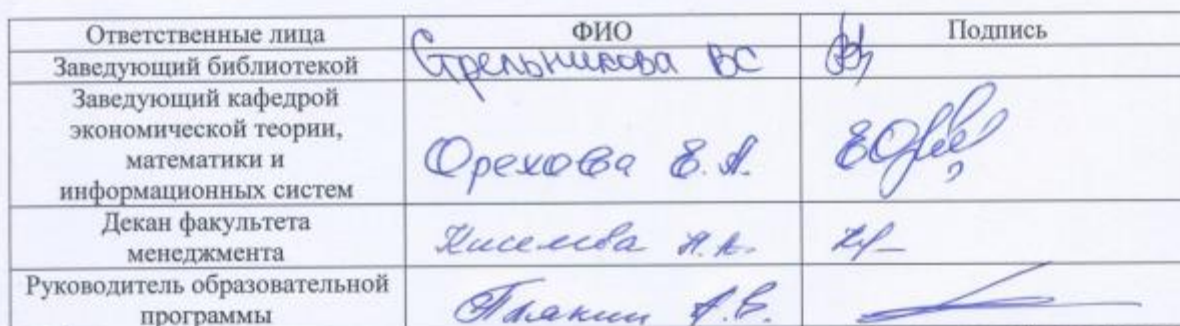 Ответственные лица ФИО Подпись
Заведующий библиотекой Стрельникова ВС
Заведующий кафедрой
экономической теории,
математики и
информационных систем Орехова Е.А.
Декан факультета
менеджмента Киселева
Руководитель образовательной
программы Плякин А.В.